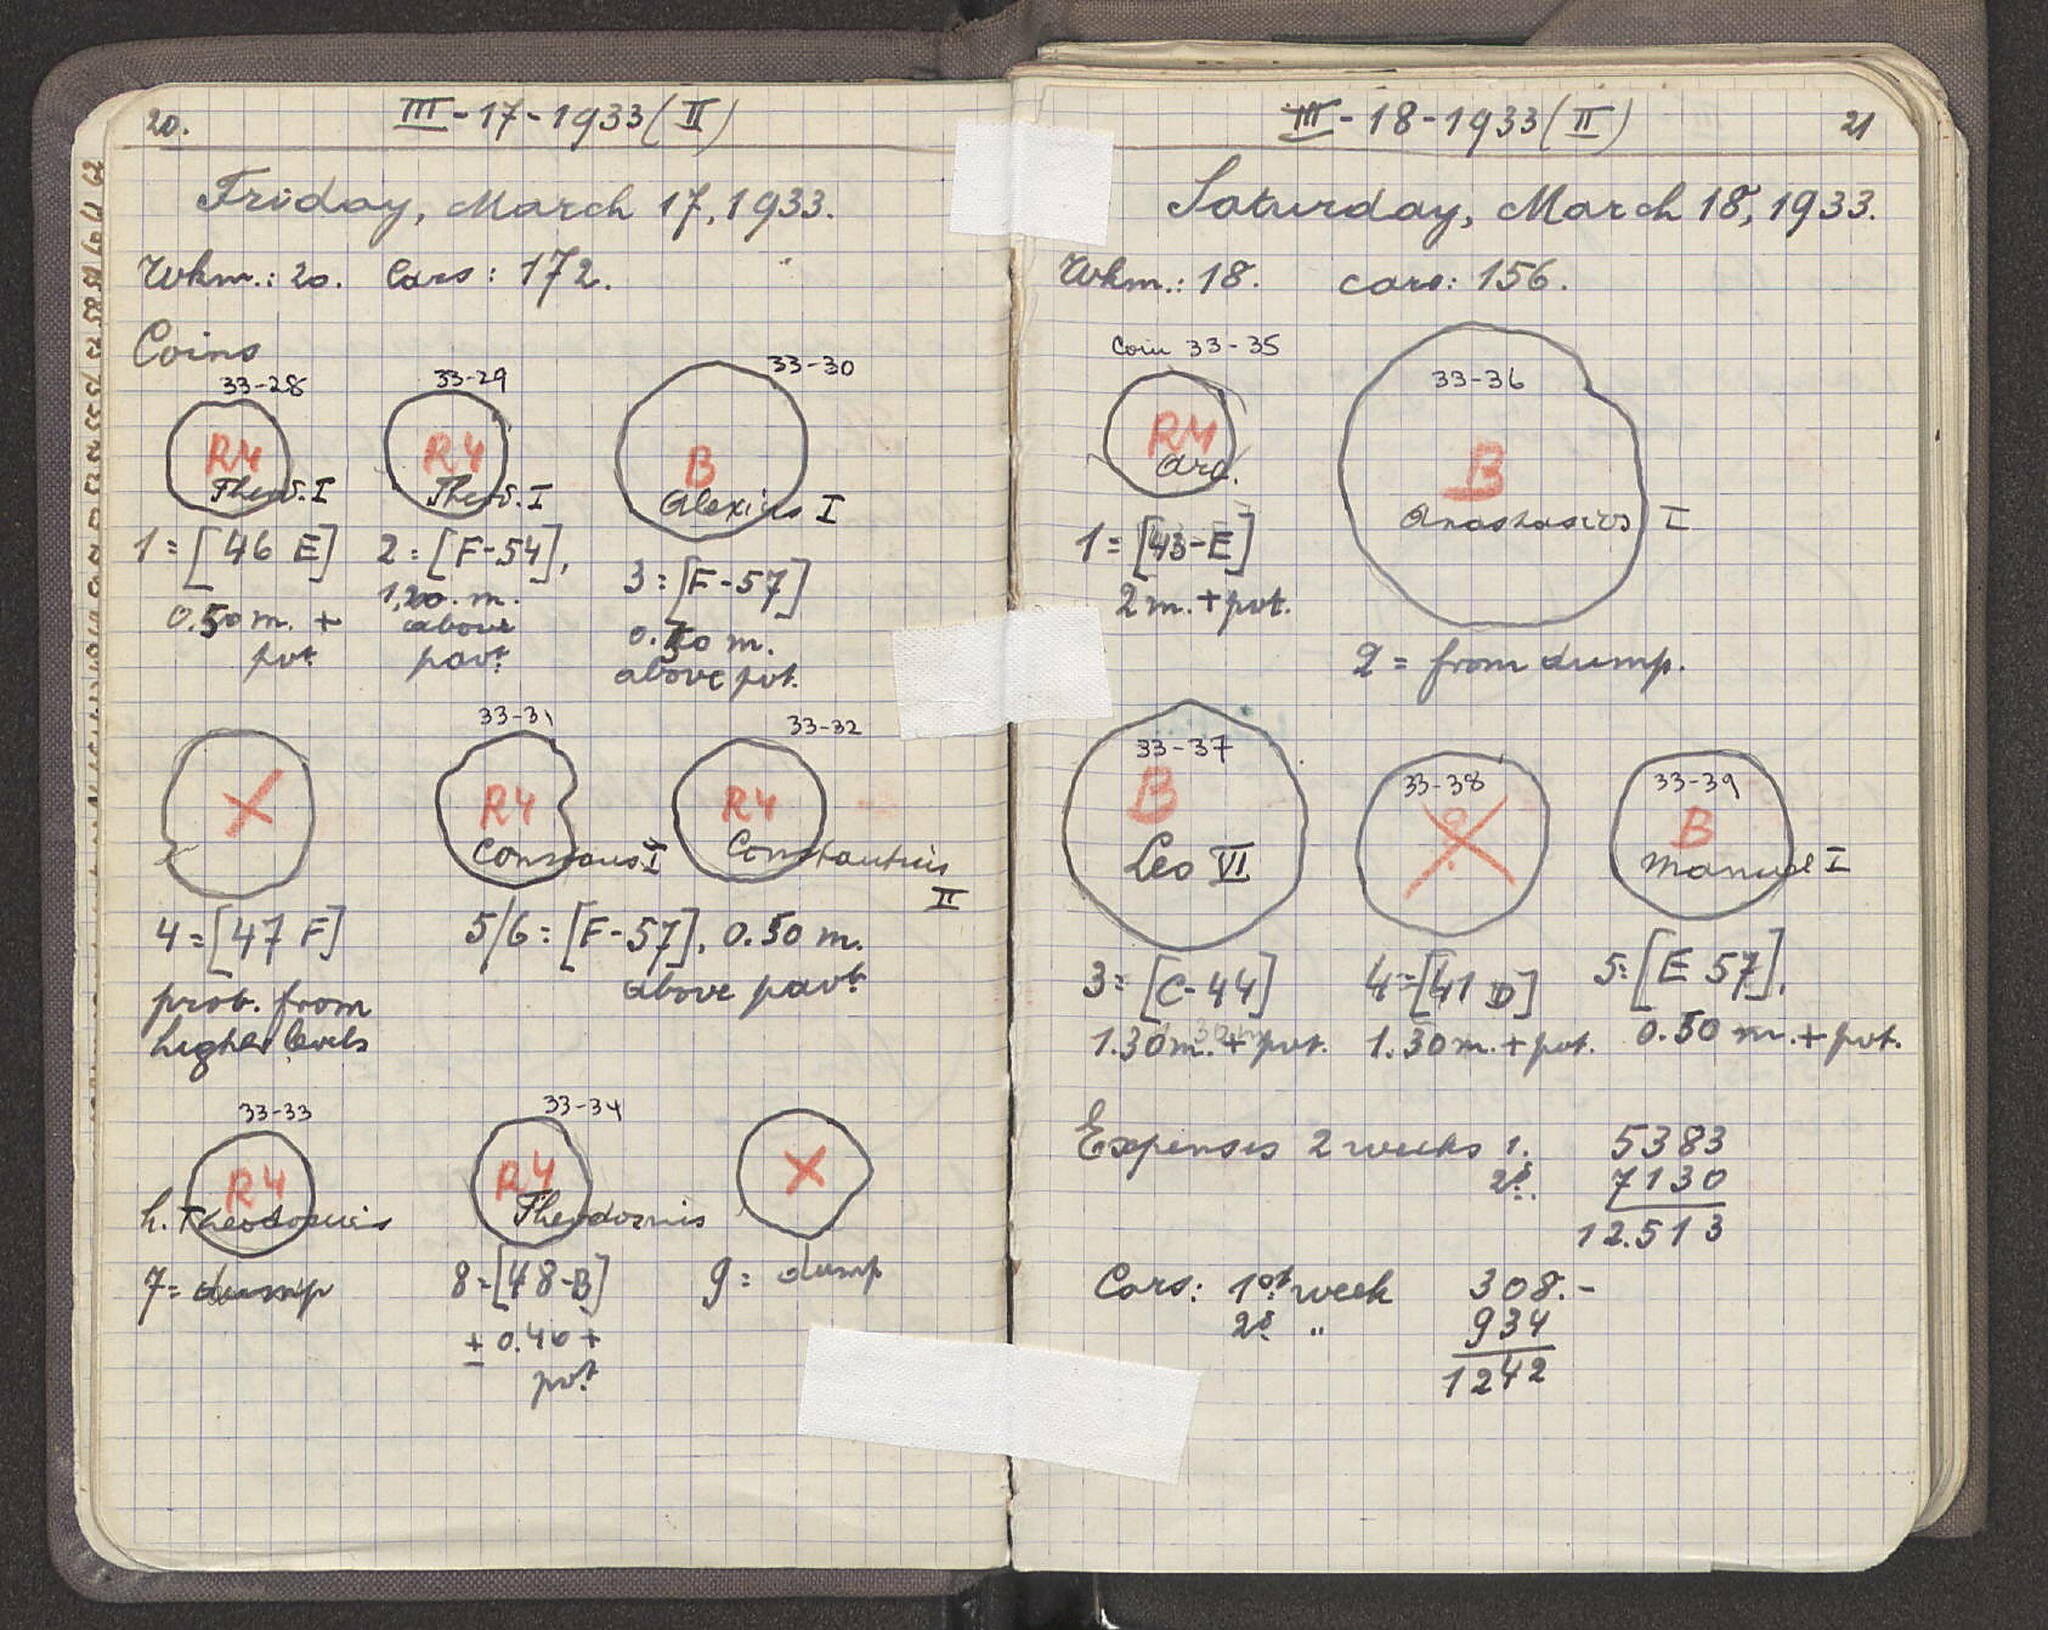 20.
III - 17 - 1933 (II)
Friday, March 17, 1933.
Wkm.: 20. Cars: 172.
Coins
33-28 33-29 33-30
R4 R4 B
Theod. I Theod. I Alexius I
1 = [46 E] 2 = [F-54], 3 = [F-57]
0.50 m. + 1,20. m. 0.50 m.
pvt above pavt. above pvt.
33-31 33-32
X R4 R4
Constans I Constantius II
4 = [47 F] 5/6 = [F-57], 0.50 m.
prob. from above pavt.
higher levels
33-33 33-34
R4 R4 X
h. Theodosius Theodosius
7 = dump 8 = [48-B] 9 = dump
± 0.40 +
pvt
III - 18 - 1933 (II)
21
Saturday, March 18, 1933.
Wkm.: 18. cars: 156.
Coin 33-35 33-36
R4 B
Arc. Anastasius I
1 = [43-E]
2 m. + pvt.
2 = from dump.
33-37 33-38 33-39
B X B
Leo VI Manuel I
3 = [C-44] 4 = [41 D] 5 = [E 57],
1.30 m. + pvt. 1.30 m. + pvt. 0.50 m. + pvt.
Expenses 2 weeks 1. 5383
2d. 7130
12.513
Cars: 1st week 308.-
2d " 934
1242